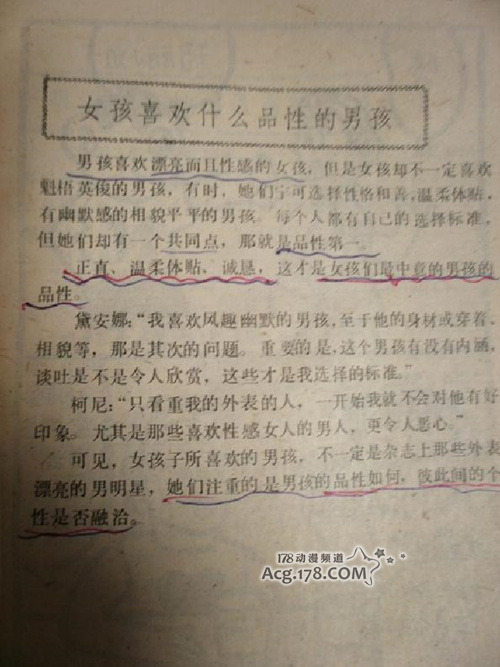 女孩喜欢什么品性的男孩
男孩喜欢漂亮而且性感的女孩，但是女孩却不一定喜欢
魁梧英俊的男孩，有时，她们宁可选择性格和善，温柔体贴，
有幽默感的相貌平平的男孩。每个人都有自己的选择标准，
但她们却有一个共同点，那就是品性第一。
正直、温柔体贴、诚恳，这才是女孩们最中意的男孩的
品性。
黛安娜：“我喜欢风趣幽默的男孩，至于他的身材或穿着、
相貌等，那是其次的问题。重要的是，这个男孩有没有内涵，
谈吐是不是令人欣赏，这些才是我选择的标准。”
柯尼：“只看重我的外表的人，一开始我就不会对他有好
印象。尤其是那些喜欢性感女人的男人，更令人恶心。”
可见，女孩子所喜欢的男孩，不一定是杂志上那些外表
漂亮的男明星，她们注重的是男孩的品性如何，彼此间的个
性是否融洽。
178动漫频道
Acg.178.COM